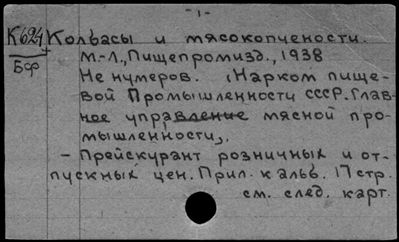 - 1 -
К624 Колбасы и мясокопчености.
Бф М.-Л., Пищепромизд., 1938
Не нумеров. (Нарком пище-
вой промышленности СССР. Глав-
ное управление мясной про-
мышленности).
- Прейскурант розничных и от-
пускных цен. Прил. к альб. 17 стр.
см. след. карт.